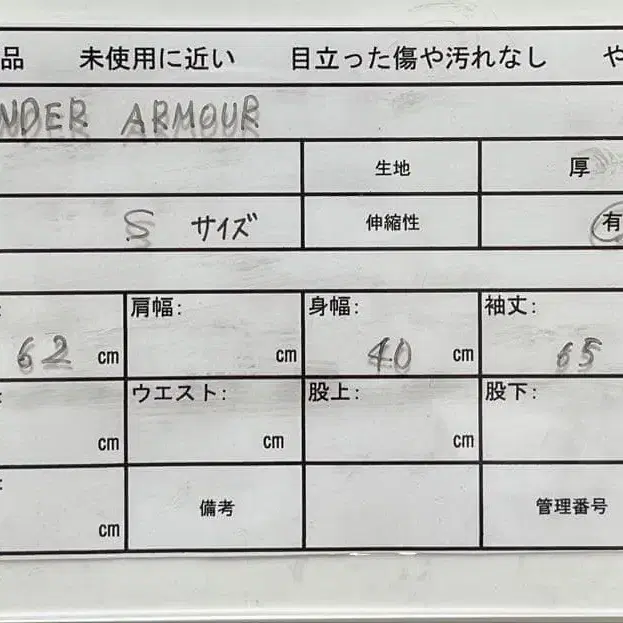 品 未使用に近い 目立った傷や汚れなし や
NDER ARMOUR
生地 厚
S サイズ 伸縮性 有
: 肩幅: 身幅: 袖丈:
62 cm cm 40 cm 65
: ウエスト: 股上: 股下:
cm cm cm
:
cm 備考 管理番号